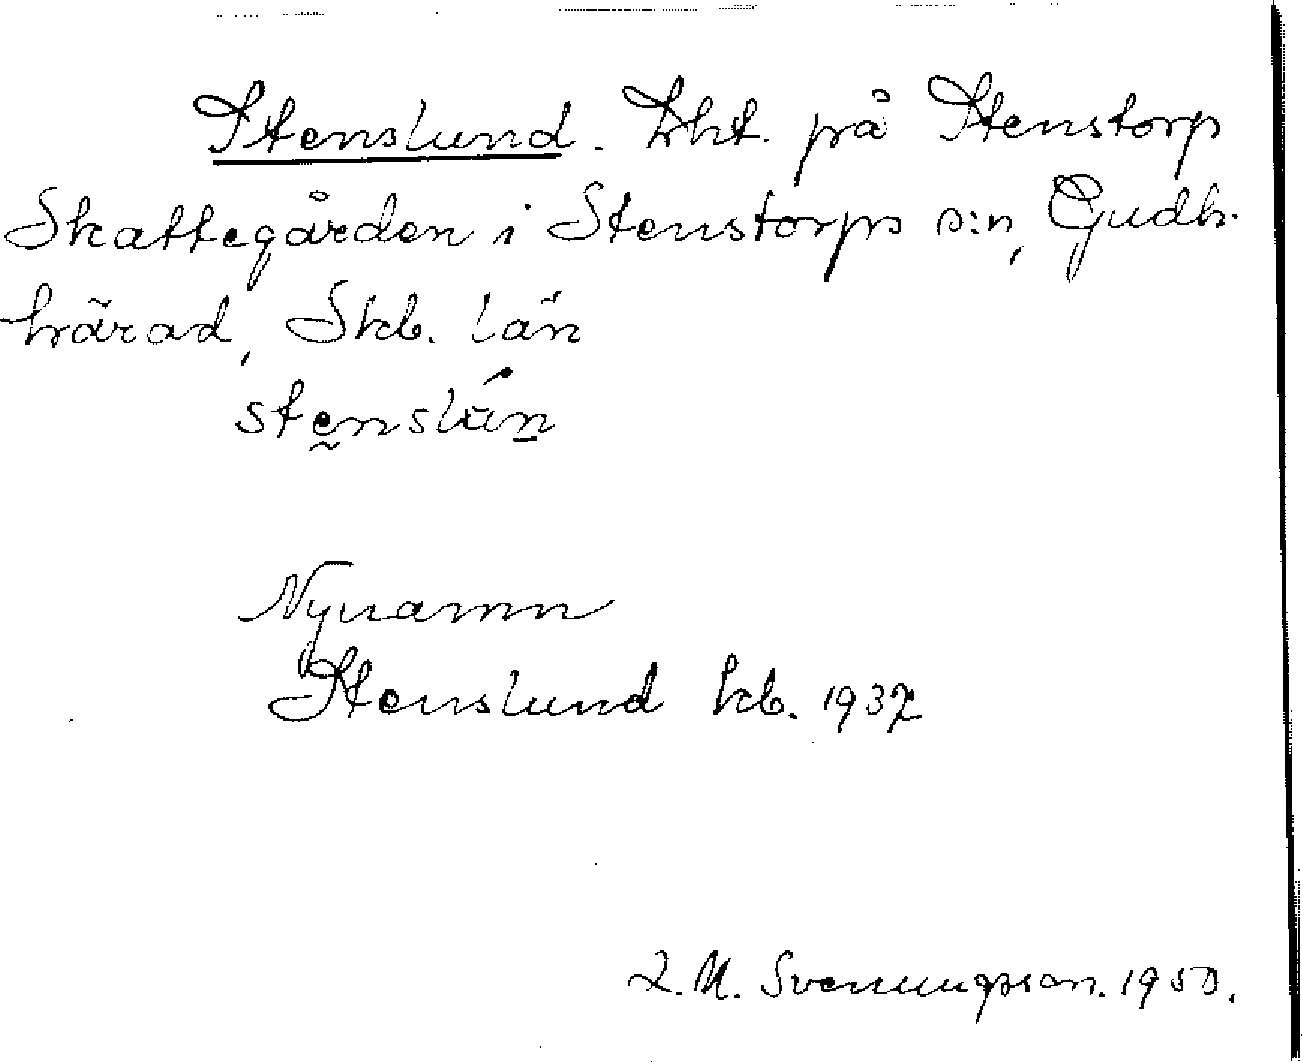 Stenslund. Lht. på Stenstorp
Skattegården i Stenstorps s:n, Gudh.
härad, Skb. län
stenslún
Nynamn
Stenslund kb. 1937
L. M. Svenungsson. 1950.